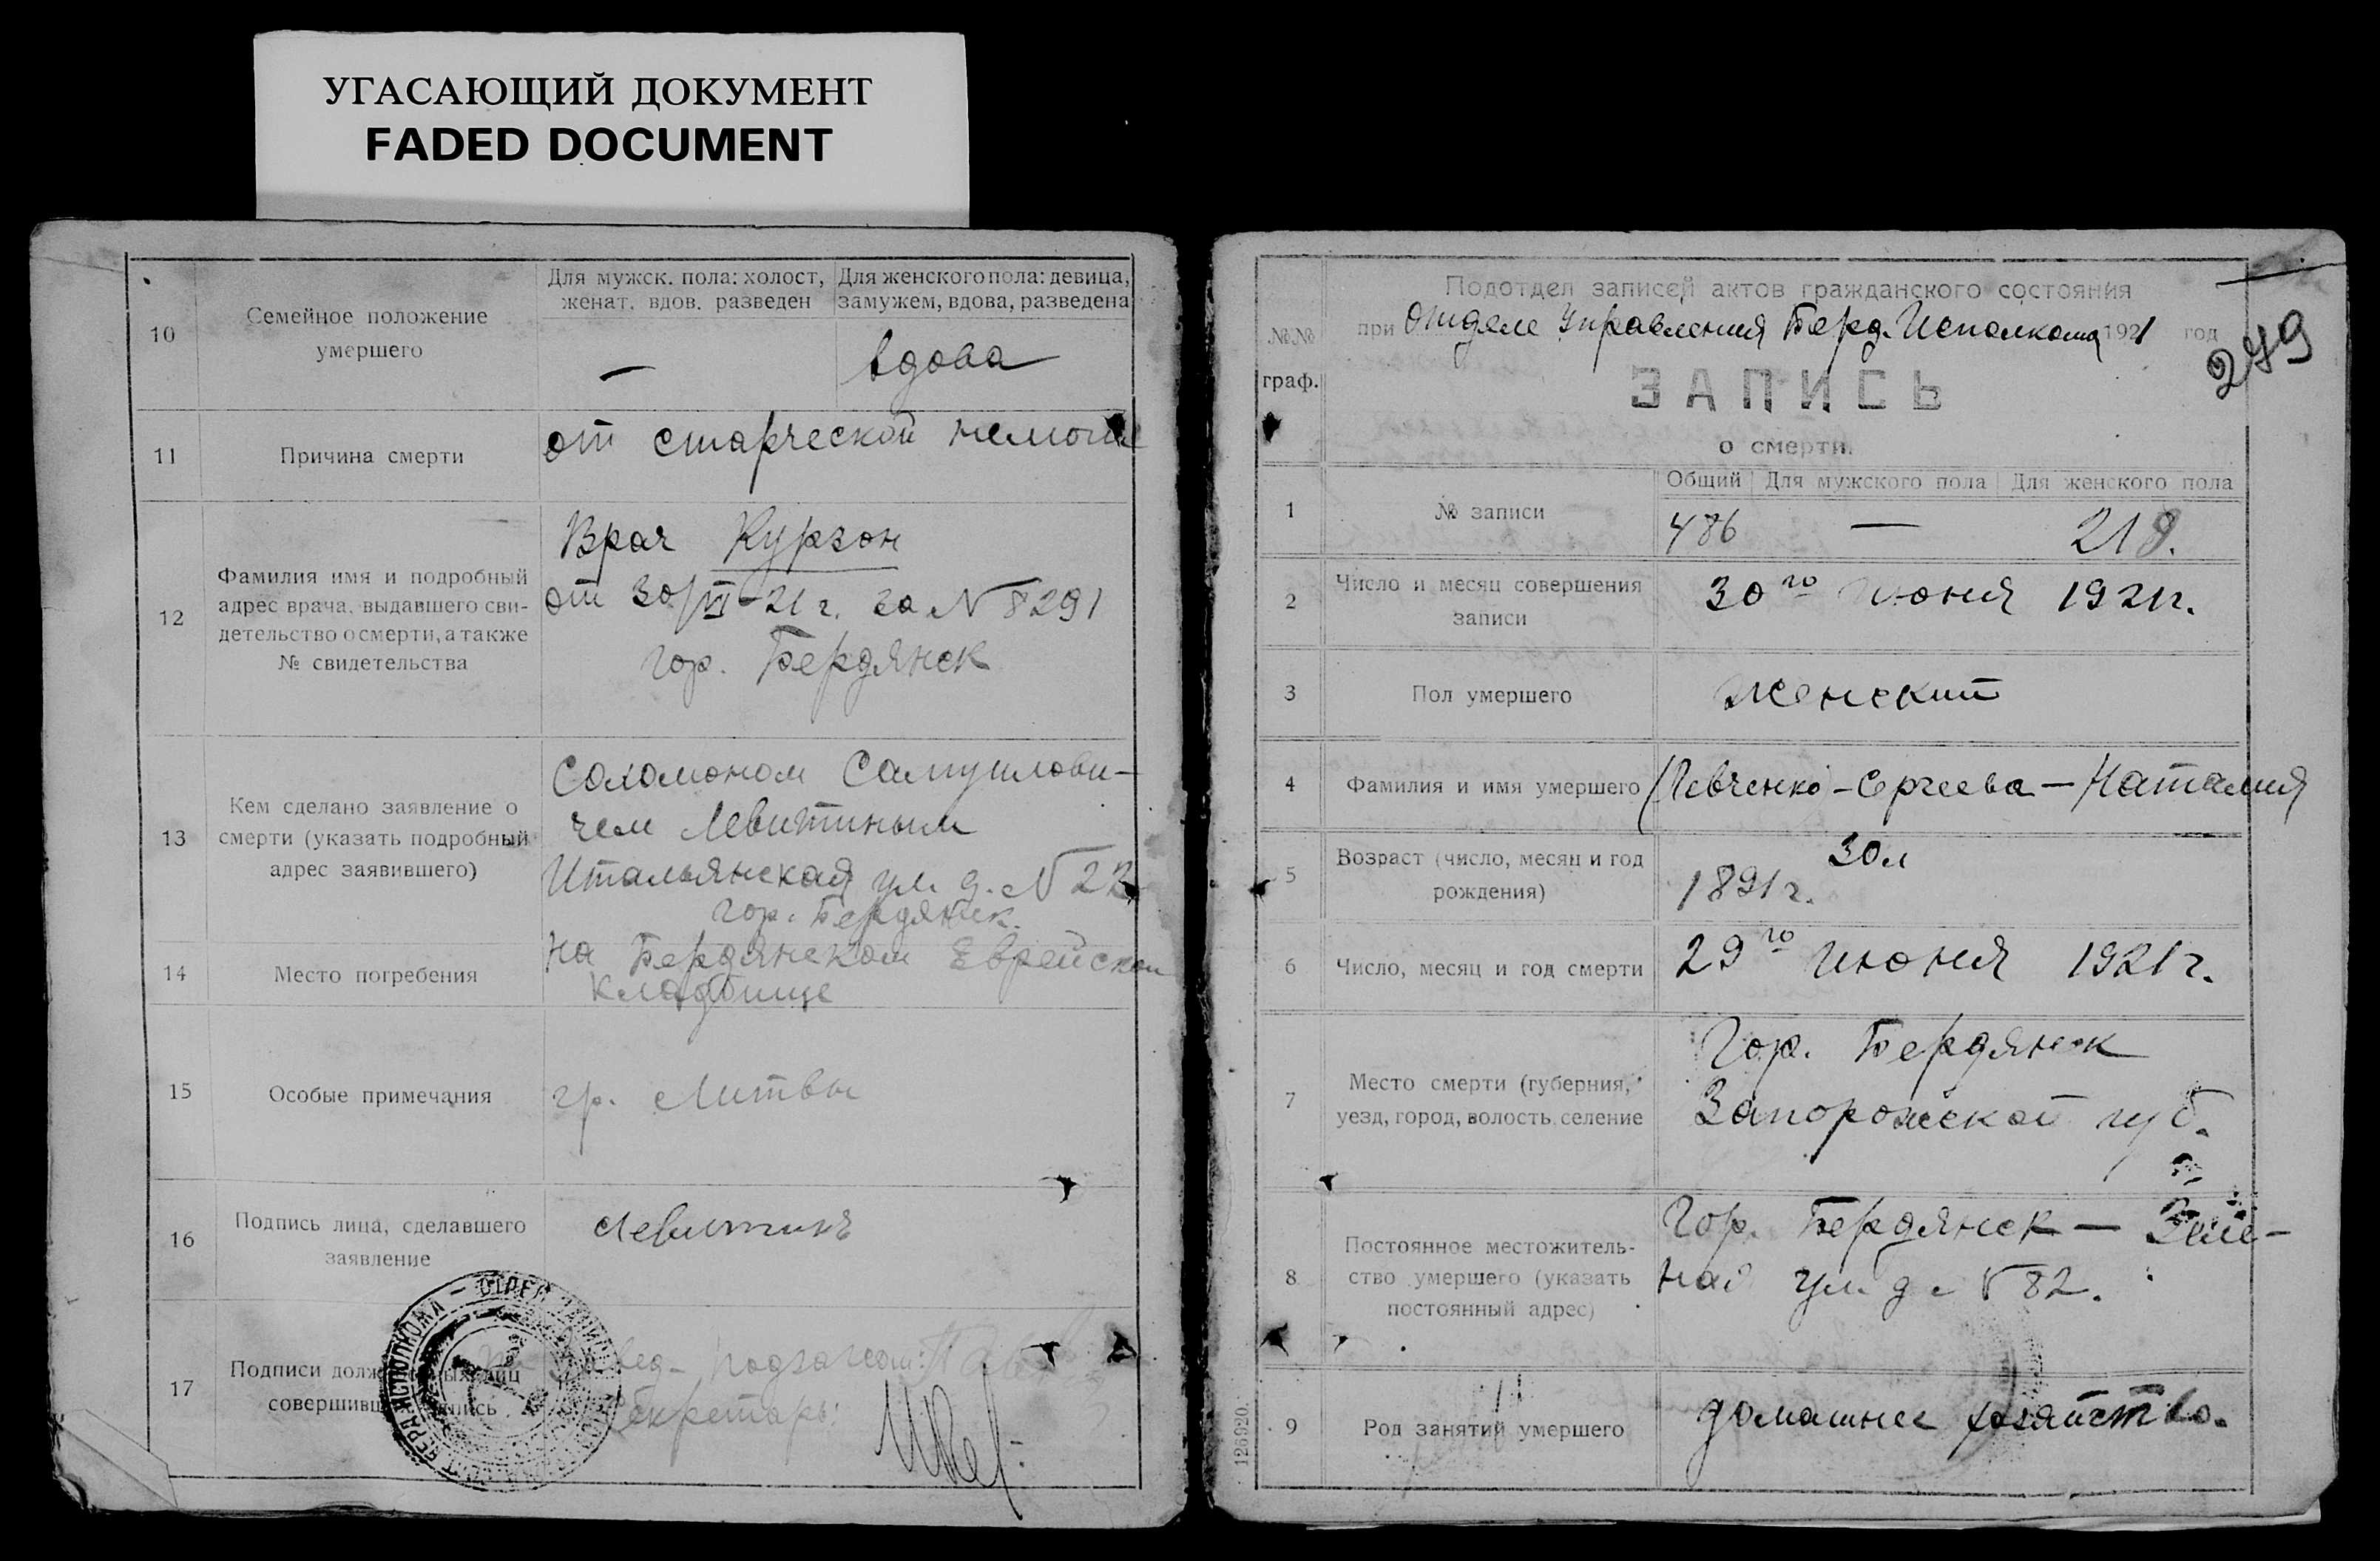 УГАСАЮЩИЙ ДОКУМЕНТ
FADED DOCUMENT
10
Семейное положение
умершего
Для мужск. пола: холост,
женат, вдов. разведен
Для женского пола: девица,
замужем, вдова, разведена
—
вдова
11
Причина смерти
от старческой немощи
12
Фамилия имя и подробный
адрес врача, выдавшего сви-
детельство о смерти, а также
№ свидетельства
Врач Курзон
от 30/VI-21 г. за N 8291
гор. Бердянск
13
Кем сделано заявление о
смерти (указать подробный
адрес заявившего)
Соломоном Самуилови-
чем Левитиным
Итальянская ул. д. N 22
гор. Бердянск.
14
Место погребения
на Бердянском Еврейском
кладбище
15
Особые примечания
гр. Литвы
16
Подпись лица, сделавшего
заявление
Левитинъ
17
Подписи долж лиц
совершивш
Завед. подзагсом:
Секретарь:
№№
граф.
Подотдел записей актов гражданского состояния
при Отделе Управления Берд. Исполкома 1921 год
279
ЗАПИСЬ
о смерти.
1
№ записи
Общий
Для мужского пола
Для женского пола
486
—
218.
2
Число и месяц совершения
записи
30го июня 1921г.
3
Пол умершего
Женский
4
Фамилия и имя умершего
Левченко-Сергеева—Наталия
5
Возраст (число, месяц и год
рождения)
30л
1891г.
6
Число, месяц и год смерти
29го июня 1921г.
7
Место смерти (губерния,
уезд, город, волость, селение
Гор. Бердянск
Запорожской губ.
8
Постоянное местожитель-
ство умершего (указать
постоянный адрес)
Гор. Бердянск —
ул. д. N 82.
9
Род занятий умершего
домашнее хозяйство.
126920.